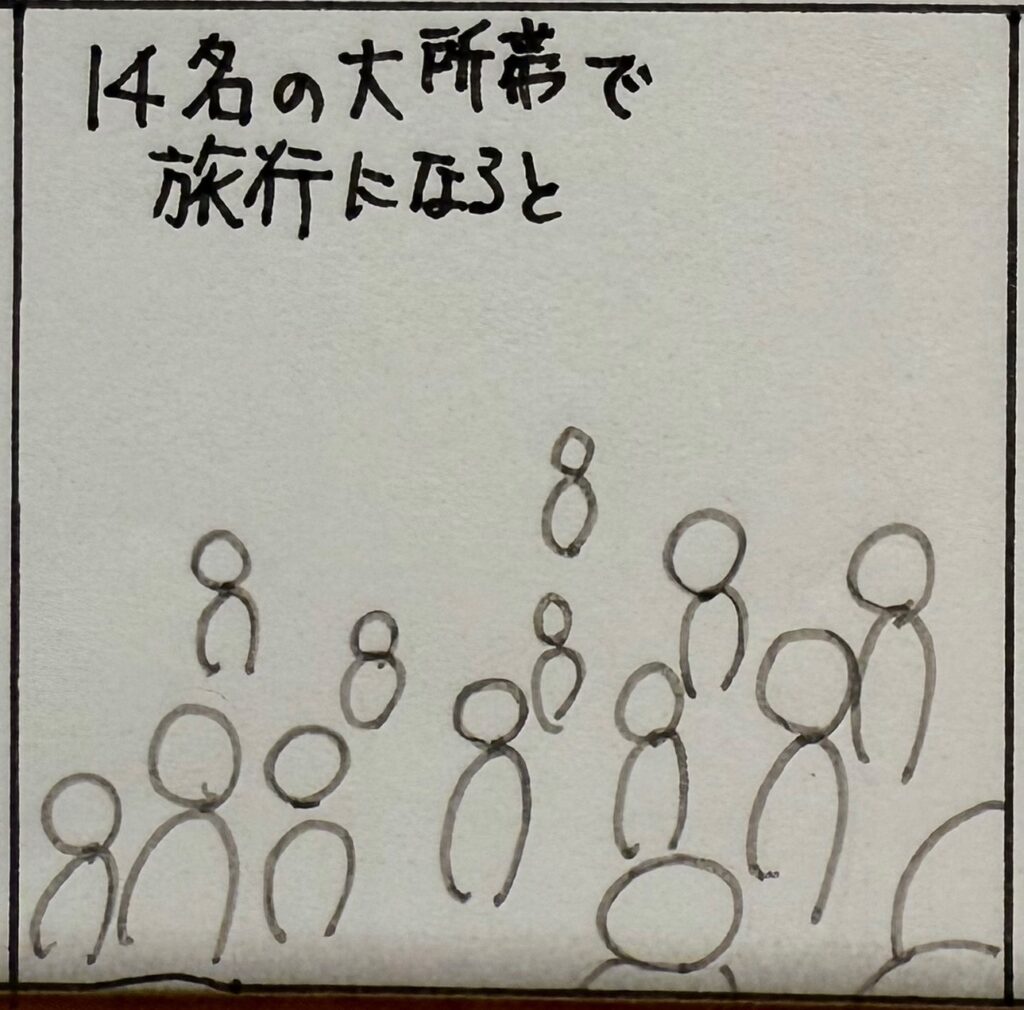 14名の大所帯で
旅行になると